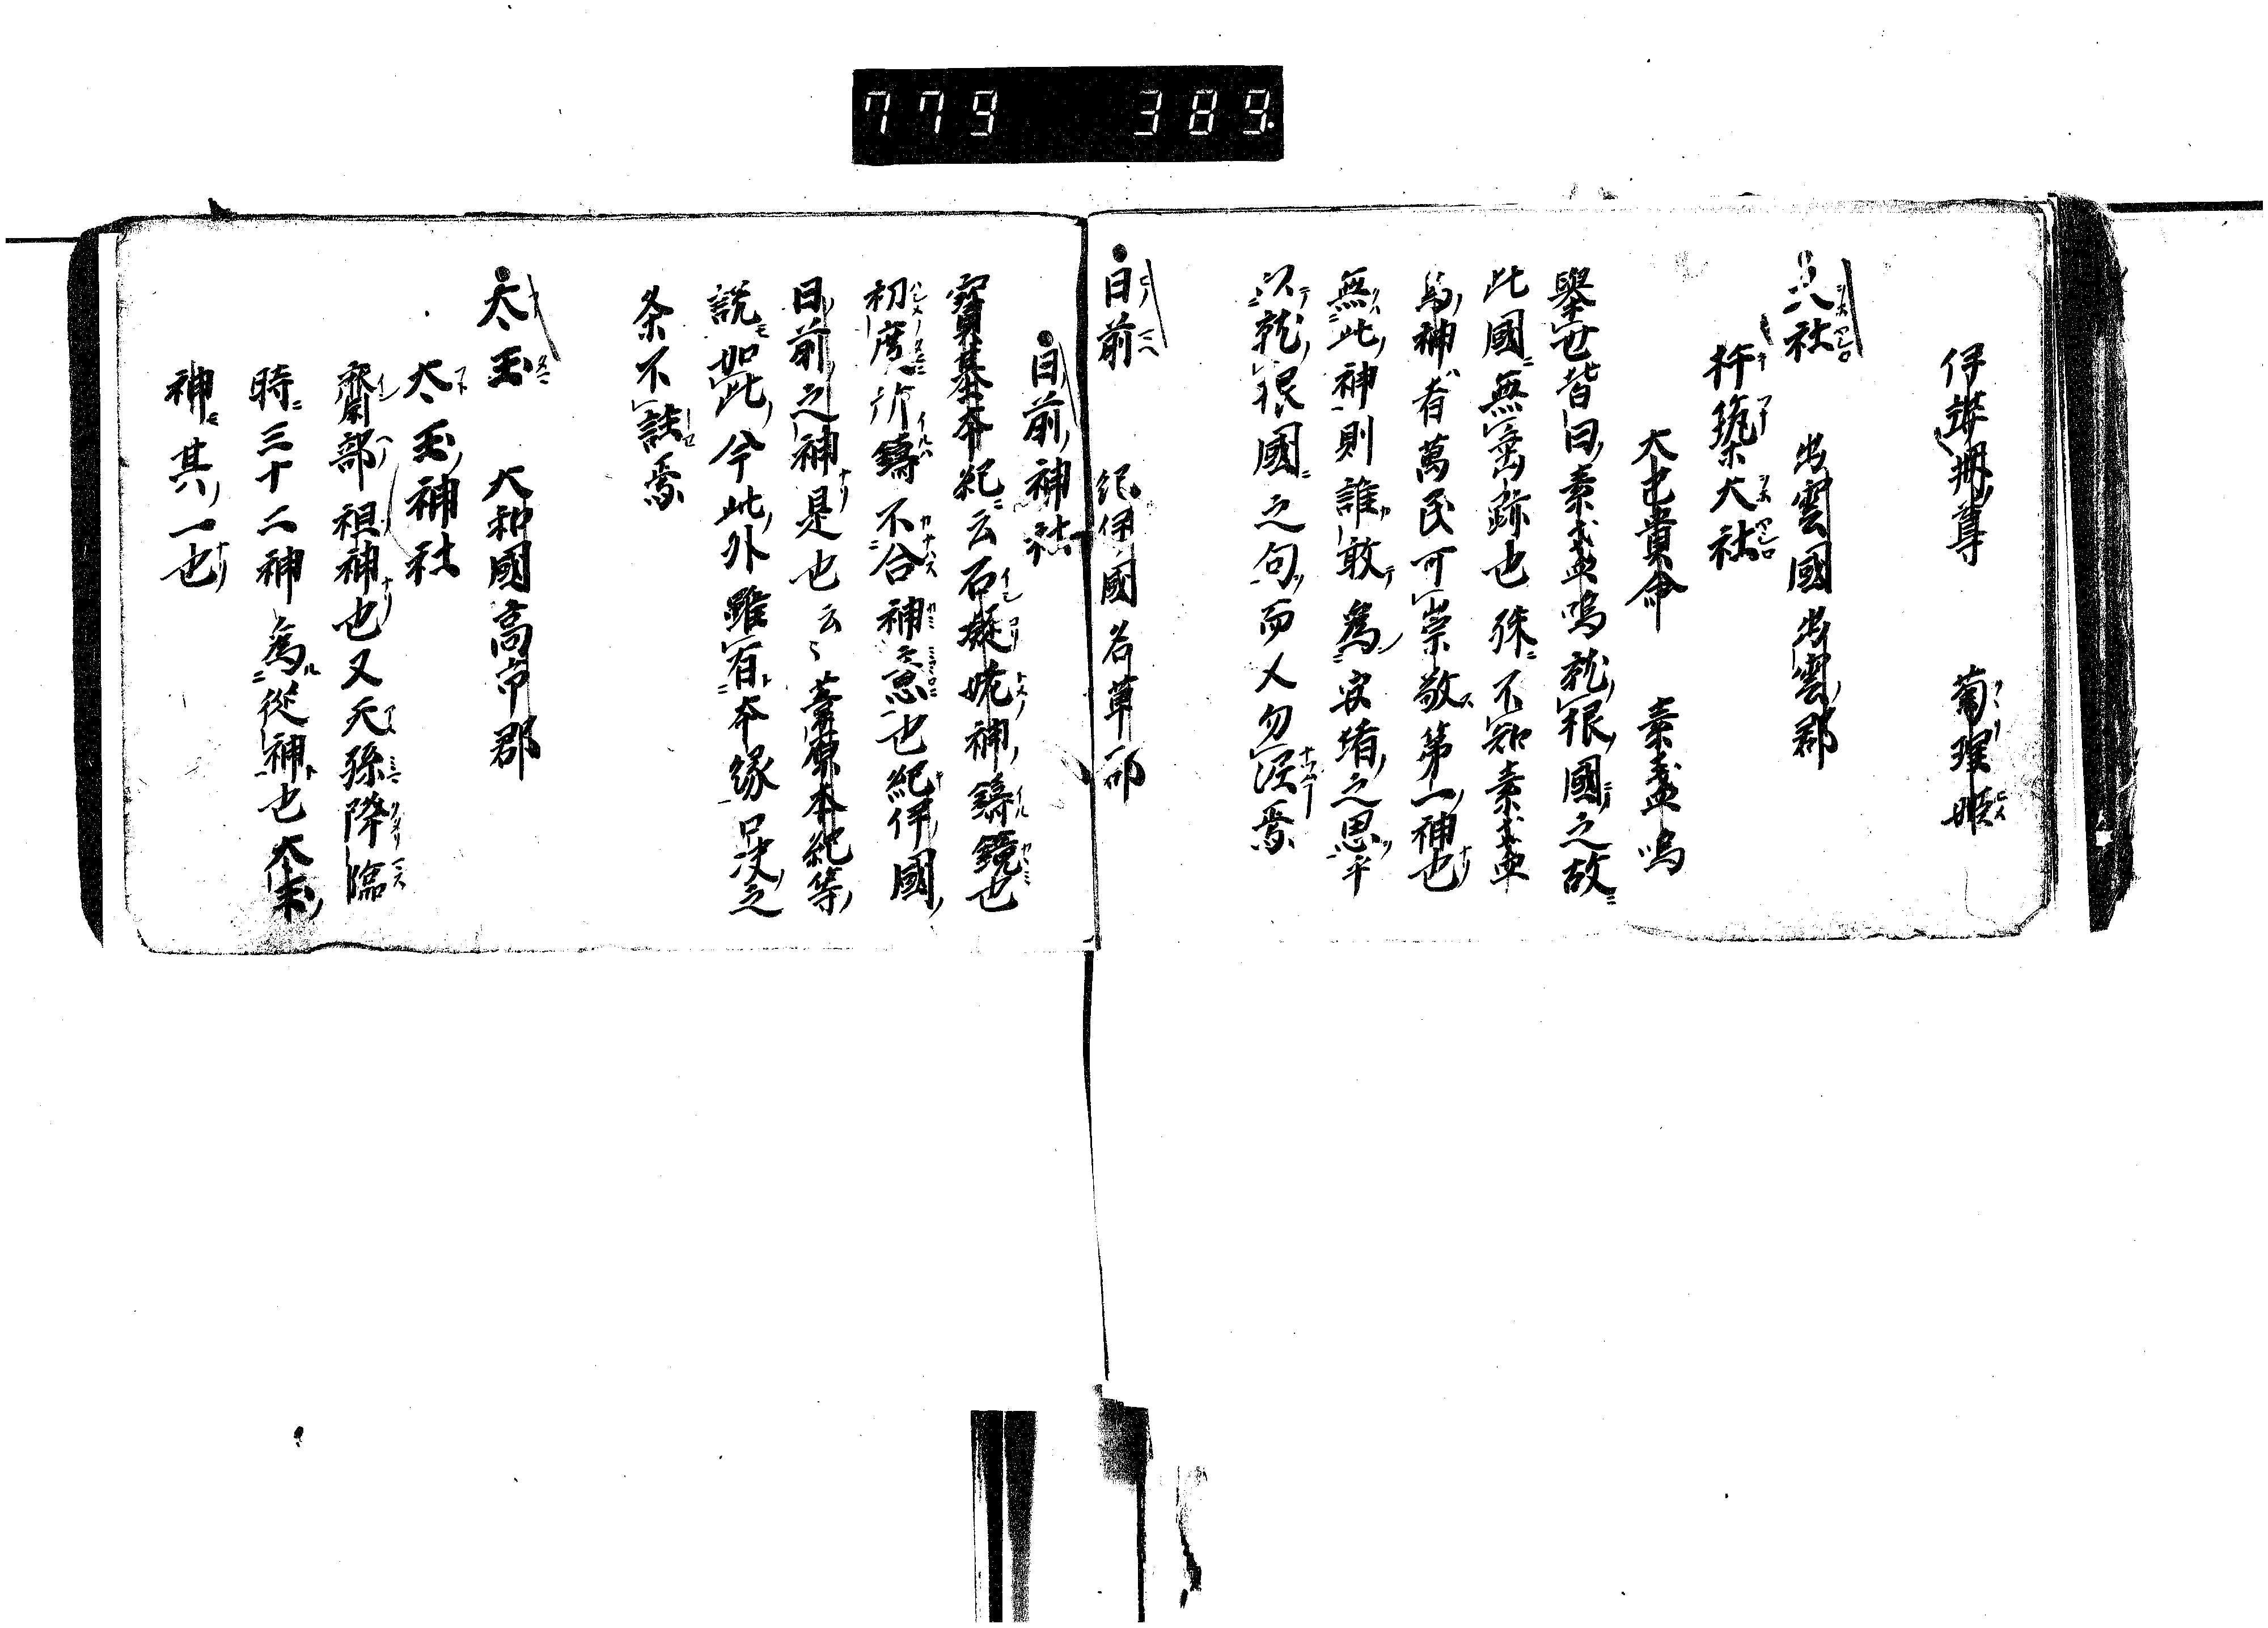 779 389
伊弉冊尊 菊理姫
大社 出雲國出雲郡
杵築大社
大己貴命 素盞嗚
擧世皆曰素盞嗚就根國之故
此國無垂跡也殊不知素盞
嗚神者萬民可崇敬第一神也
無此神則誰敢為安堵之思乎
以就根國之句而人勿泥焉
日前 紀伊國名草郡
日前神社
寶基本紀云石凝姥神鑄鏡也
初度所鑄不合神意也紀伊國
日前之神是也云〻舊本紀等
說如此今此外雖有本緣口決之
条不註焉
太玉 大和國高市郡
太玉神社
齋部祖神也又天孫降臨
時三十二神為從神也太玉
神其一也